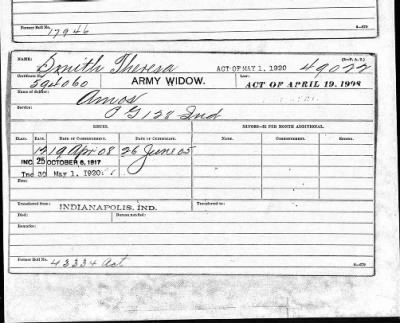 Former Roll No. 17946
3—379
NAME: Smith Theresa ACT OF MAY 1, 1920 49077
Certificate No. 594060 ARMY WIDOW. Law: ACT OF APRIL 19, 1908
Name of Soldier: Amos
Service: G 128 Ind
ISSUES. MINORS—$2 PER MONTH ADDITIONAL.
Class. Rate. Date of Commencement. Date of Certificate. Rate. Date of Commencement. Name.
12 19 Apr 08 26 June 05
INC 25 OCTOBER 6, 1917
Inc 30 May 1, 1920
Transferred from INDIANAPOLIS, IND. Transferred to
Died: Bureau notified:
Remarks:
Former Roll No. 43334 Act
3—379